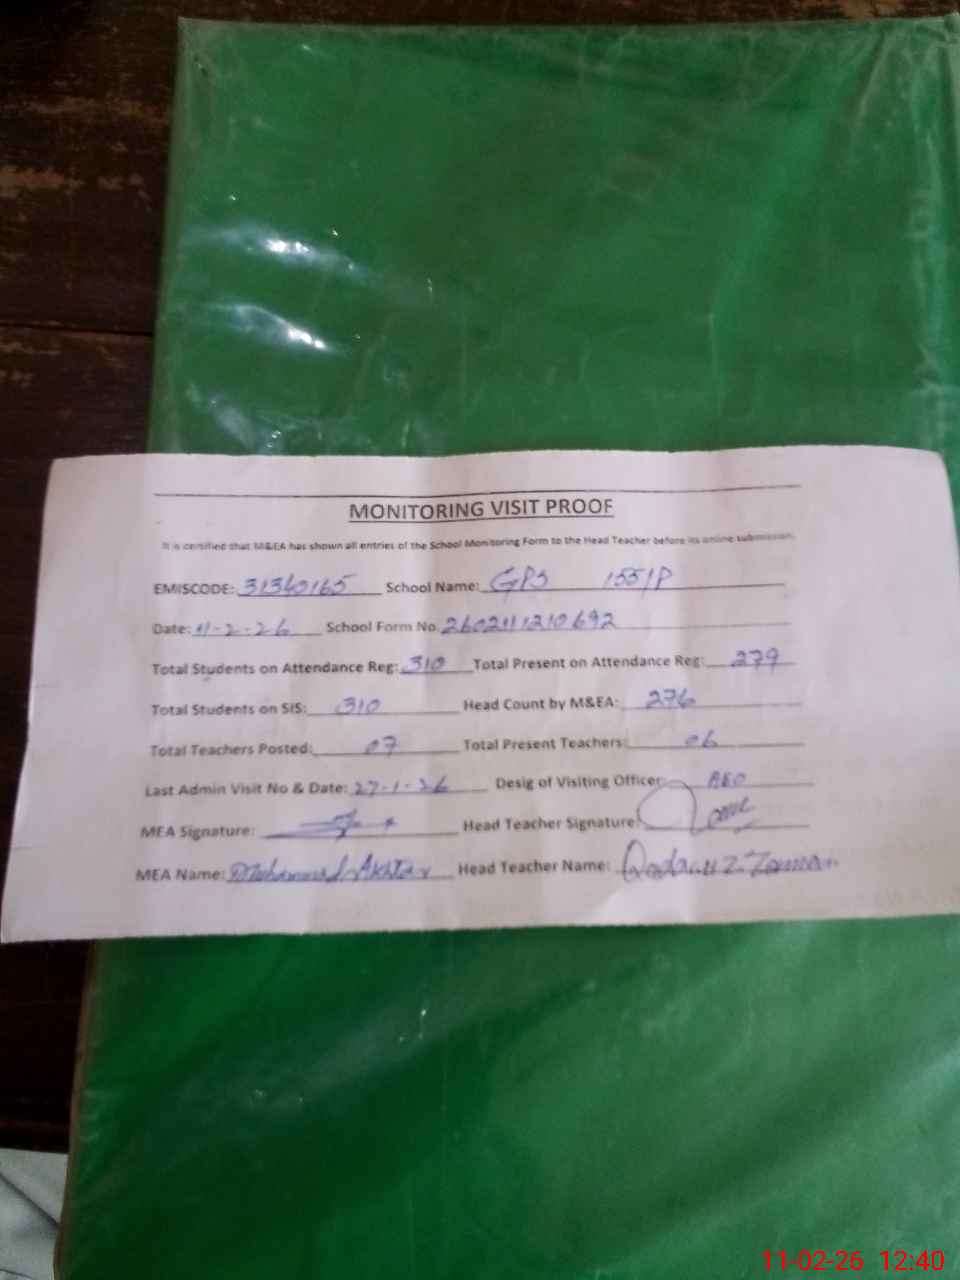 MONITORING VISIT PROOF
It is certified that M&EA has shown all entries of the School Monitoring Form to the Head Teacher before its online submission.
EMISCODE: 31340165 School Name: GPS 155/P
Date: 11-2-26 School Form No. 2602111210692
Total Students on Attendance Reg: 310 Total Present on Attendance Reg: 279
Total Students on SIS: 310 Head Count by M&EA: 276
Total Teachers Posted: 07 Total Present Teachers: 06
Last Admin Visit No & Date: 27-1-26 Desig of Visiting Officer: AEO
MEA Signature: Head Teacher Signature:
MEA Name: Muhammad Akhtar Head Teacher Name: Zaman
11-02-26 12:40